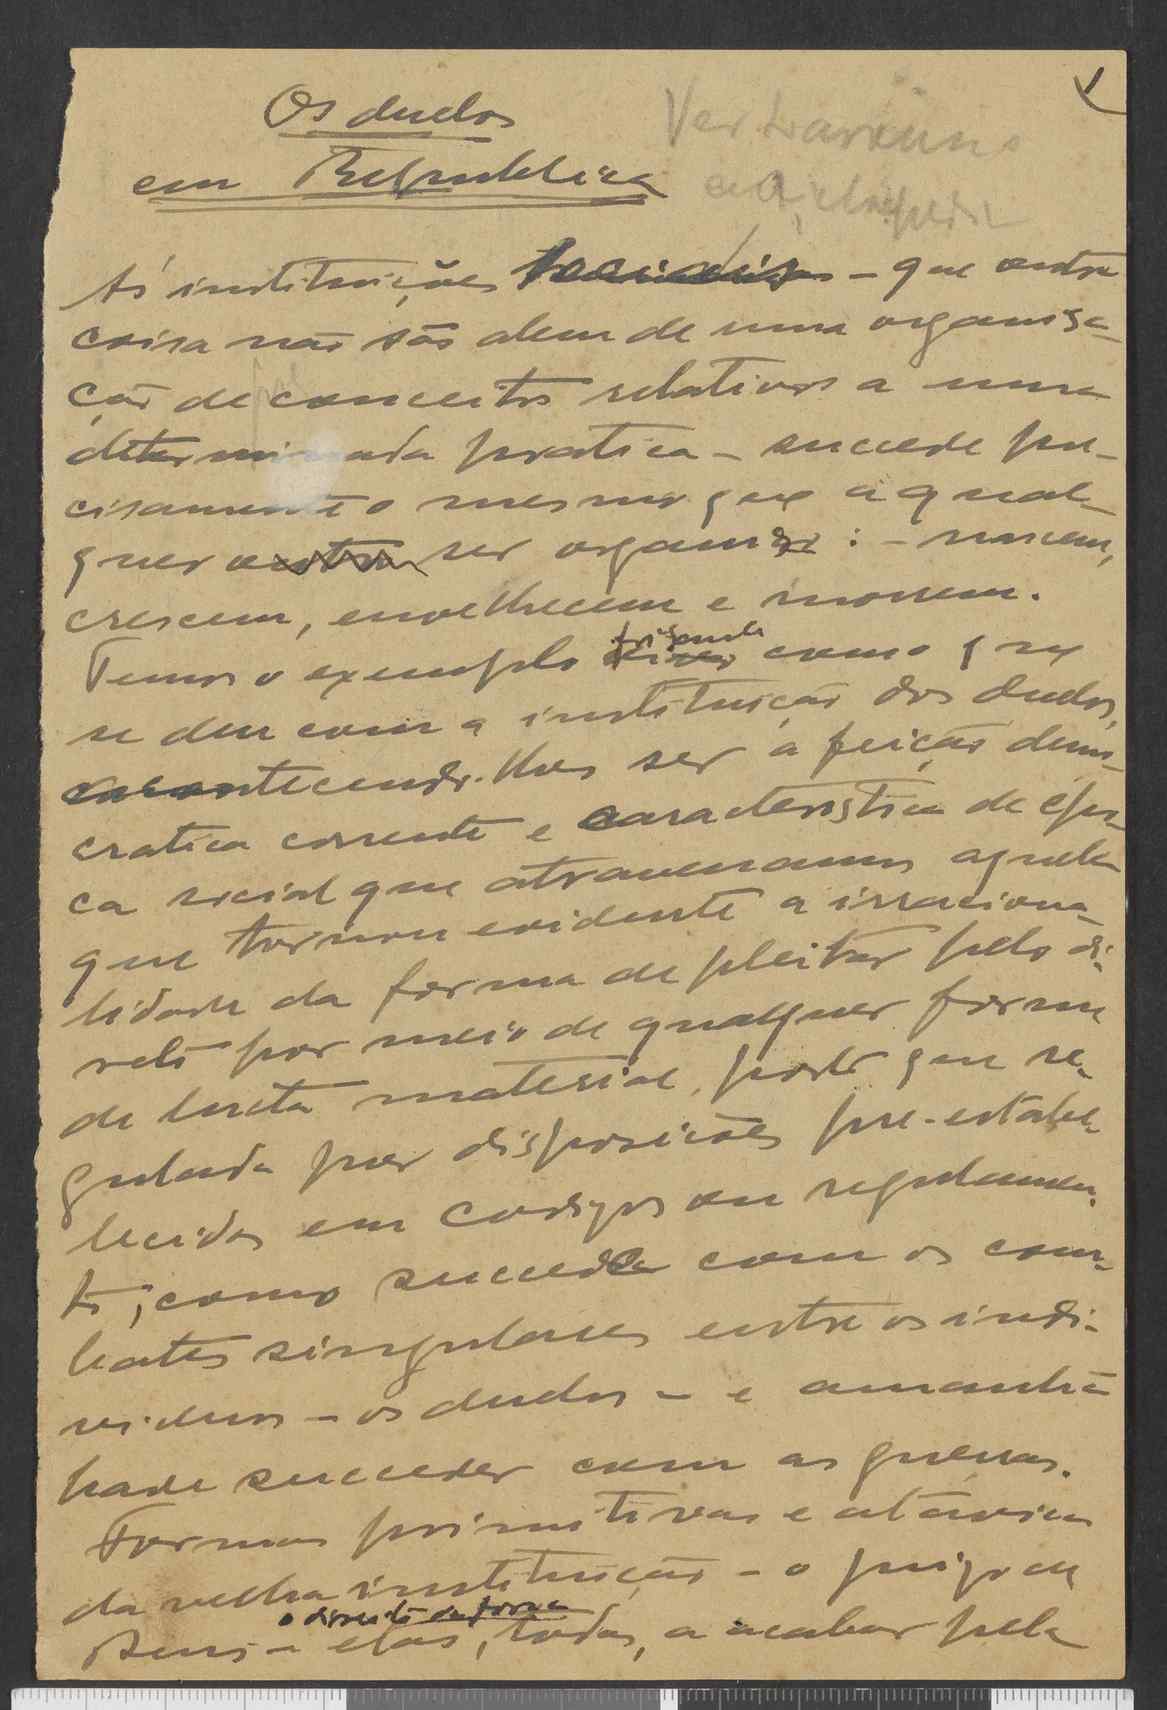 1
Os duelos
em Republica
Ver
Ás instituições sociais - que outra
coisa não são alem de uma organisa-
ção de conceitos relativos a uma
determinada pratica - succede pre-
cisamente o mesmo que a qual-
quer outro ser organico: - nascem,
crescem, envelhecem e morrem.
Temos o exemplo frisante como que
se deu com a instituição dos duelos,
acontecendo-lhes ser a feição demo-
cratica corrente e caracteristica de epo-
ca social que atravessamos aquela
que tornou evidente a irraciona-
lidade da forma de pleitear pelo di-
reito por meio de qualquer forma
de lucta material, posto que re-
gulada por disposições pre-estabe-
lecidas em codigos ou regulamen-
tos; como succede com os com-
bates singulares entre os indi-
viduos - os duelos - e amanhã
hade succeder com as guerras.
Formas primitivas e atavicas
da velha instituição - o juizo de
o direito da força
Deus - elas, todas, a acabar pela